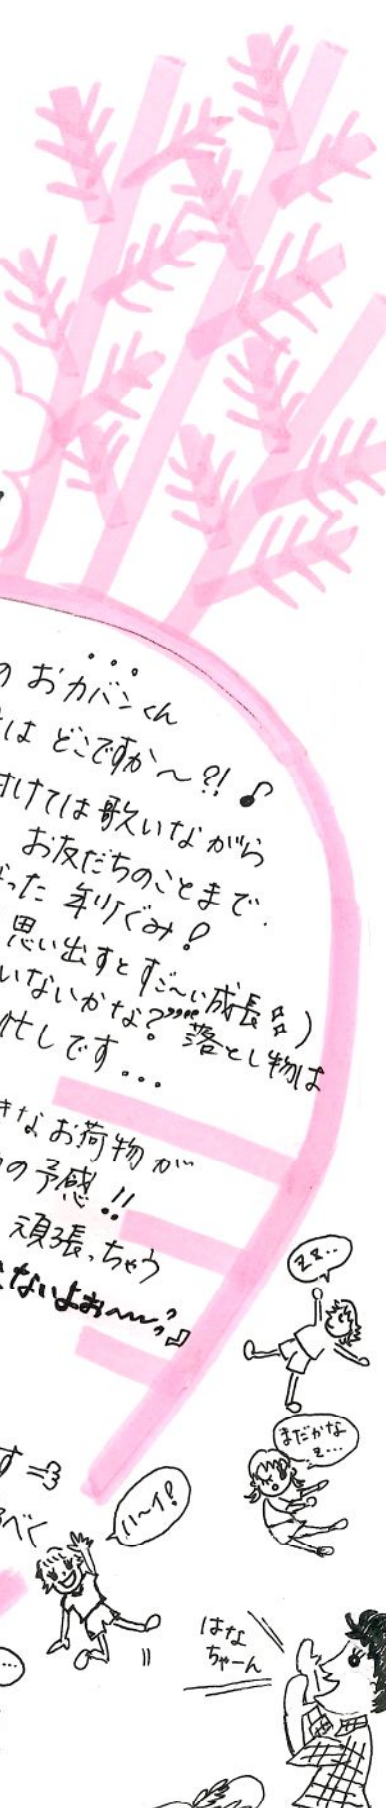 の おカバンくん
は どこですか〜?!♪
付けては歌いながら
お友だちのことまで.
った 年リぐみ!
思い出すとすご〜い成長)
いないかな?”” 落とし物は
忙しです...
きなお荷物が
の予感!!
頑張っちゃう
ないよぉ〜〜
す
べく
zz...
まだかな
z...
ハ〜イ!
はな
ちゃーん
...